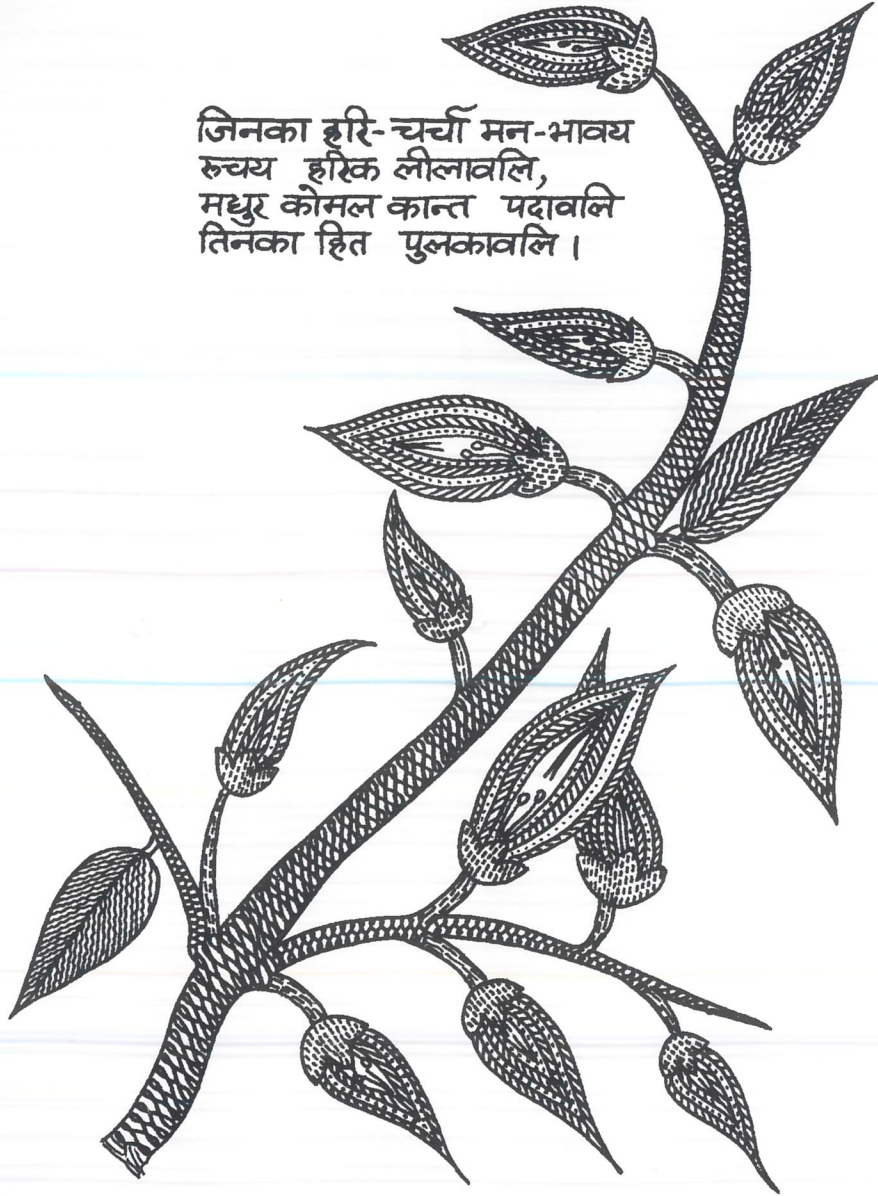 जिनका हरि-चर्चा मन-भावय
रूचय हरिक लीलावलि,
मधुर कोमल कान्त पदावलि
तिनका हित पुलकावलि ।